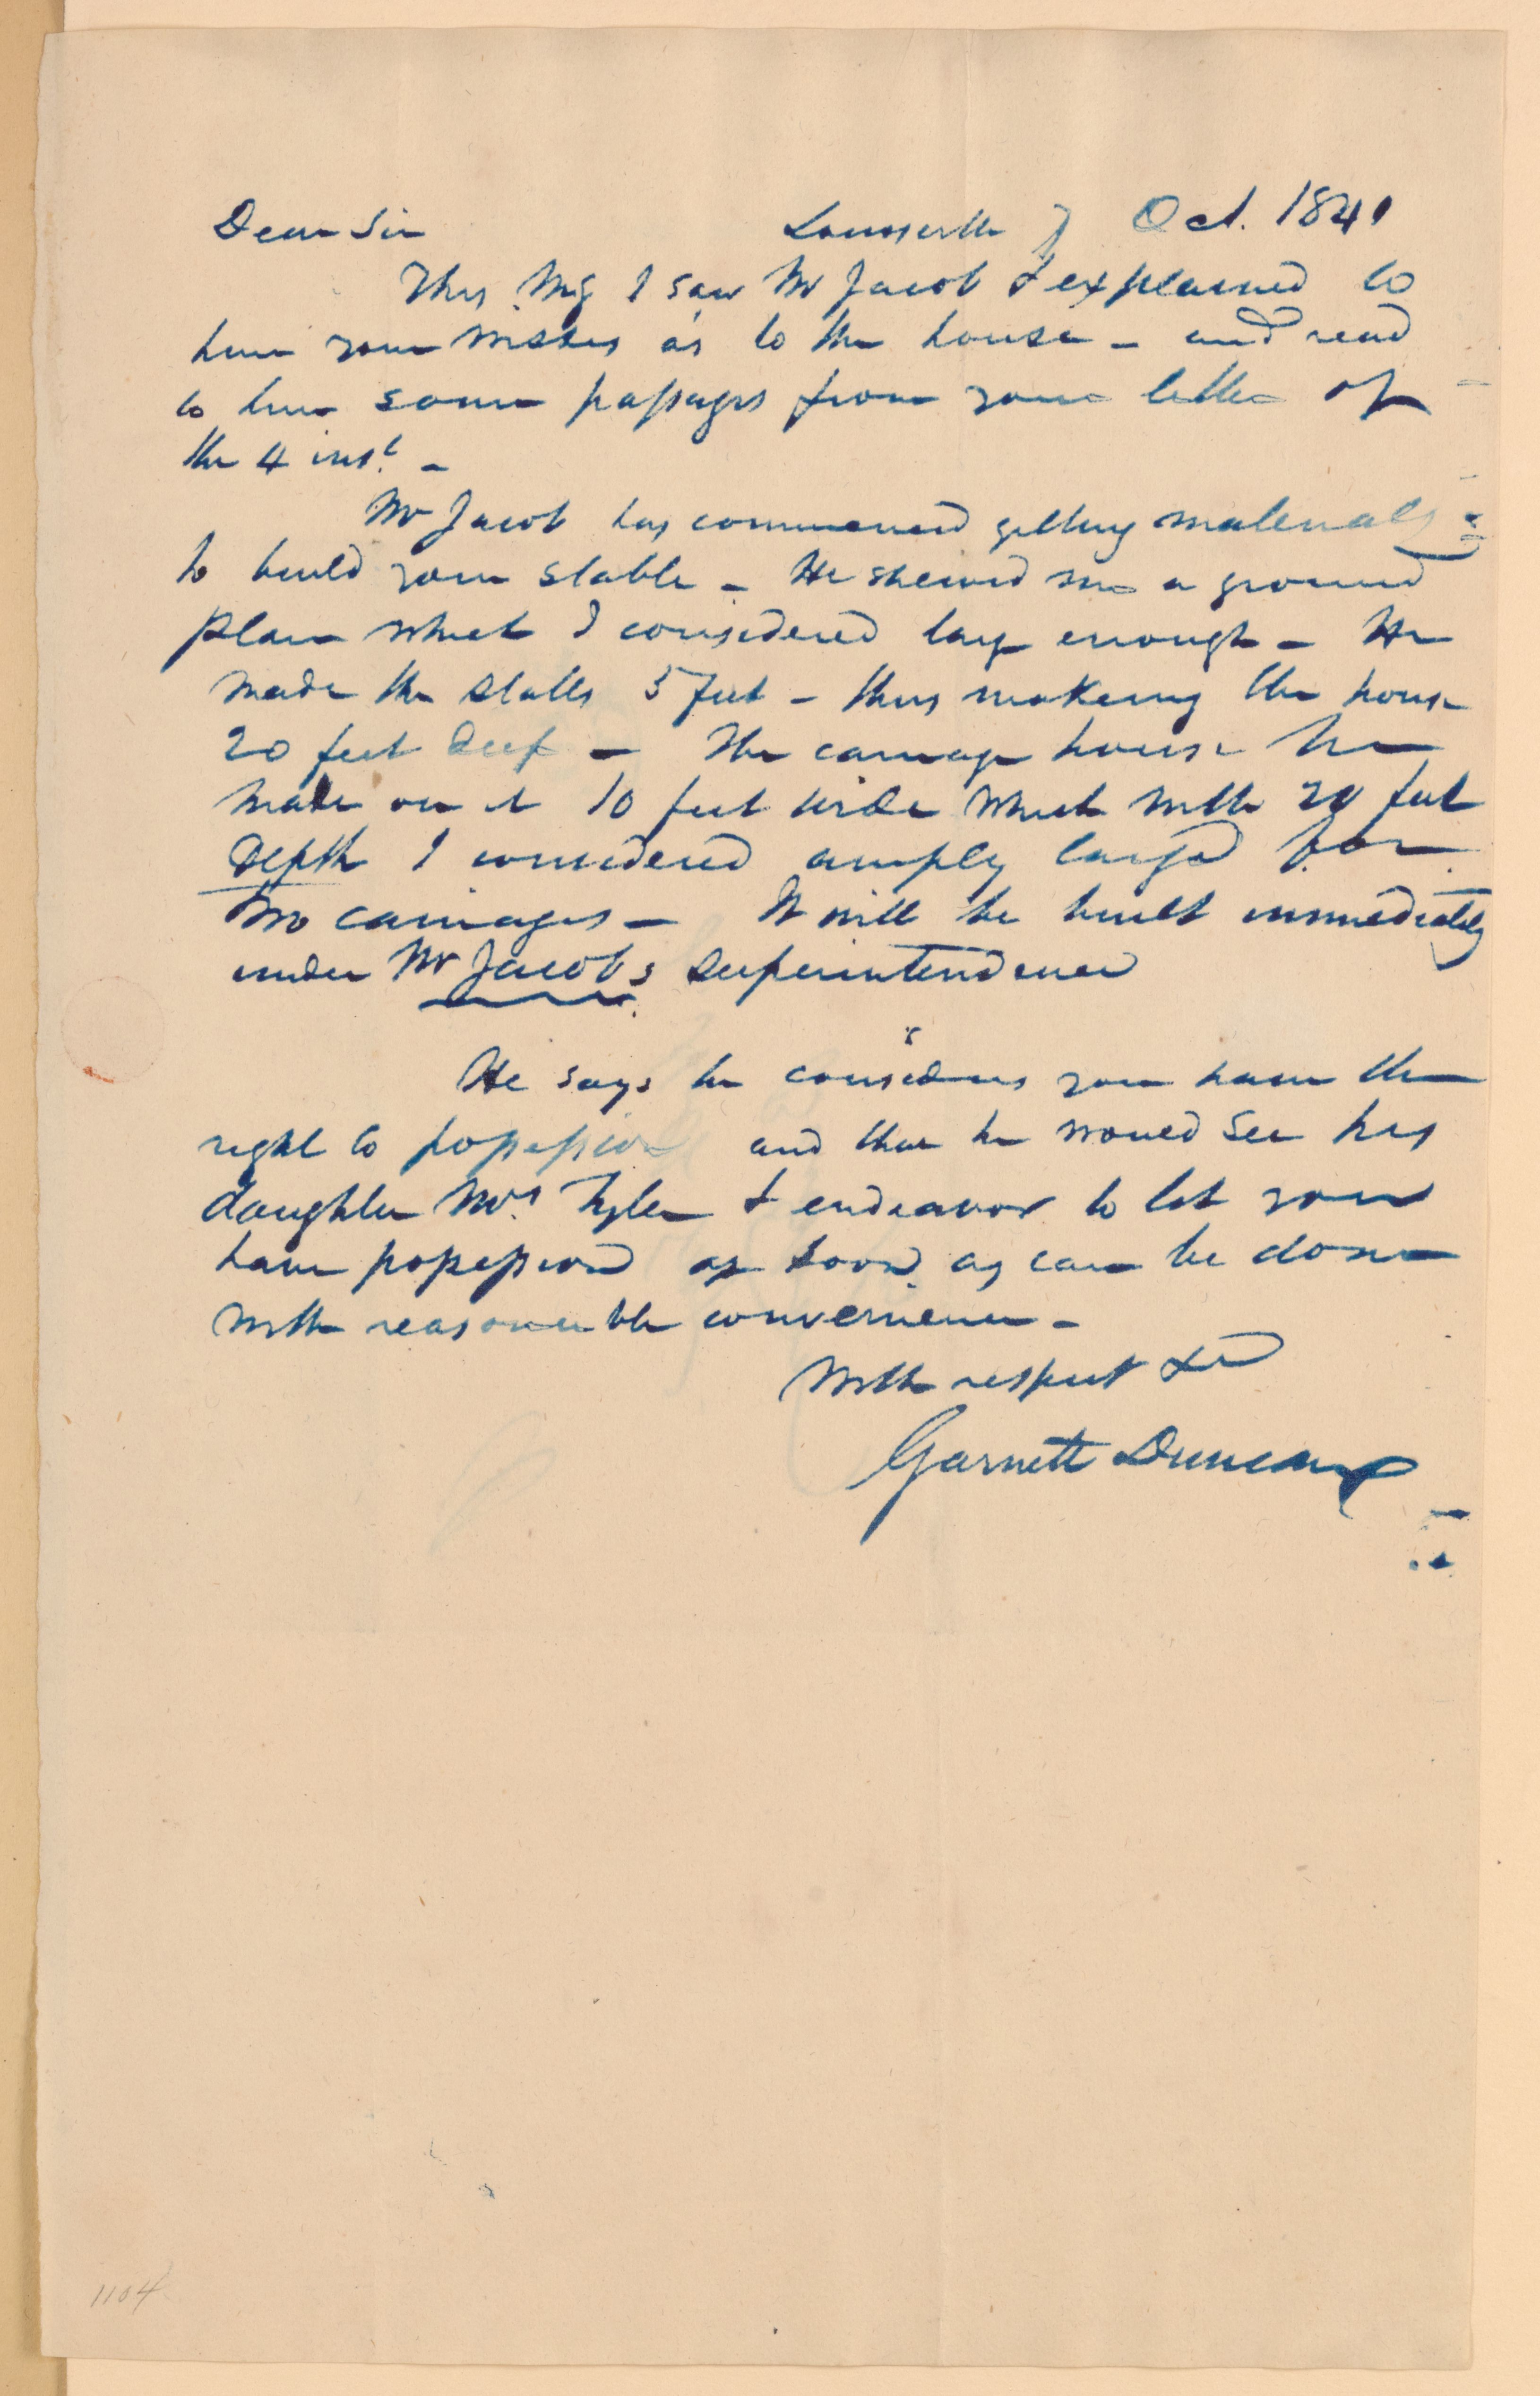 Dear Sir Louisville 7 Oct. 1841
This Mg I saw Mr Jacob & explained to
him your wishes as to the house – and read
to him some passages from your letter of
the 4 inst. –
Mr Jacob has commenced getting materials
to build your stable – He shewed me a ground
plan which I considered large enough – He
made the stalls 5 feet – thus making the house
20 feet deep – The carriage house he
made on it 10 feet wide which with 20 feet
depth I considered amply large for
two carriages – It will be built immediately
under Mr Jacobs superintendence
He says he considers you have the
right to possession and that he would see his
daughter Mrs Tyler & endeavor to let you
have possession as soon as can be done
with reasonable convenience –
With respect &c
Garnett Duncan
1104